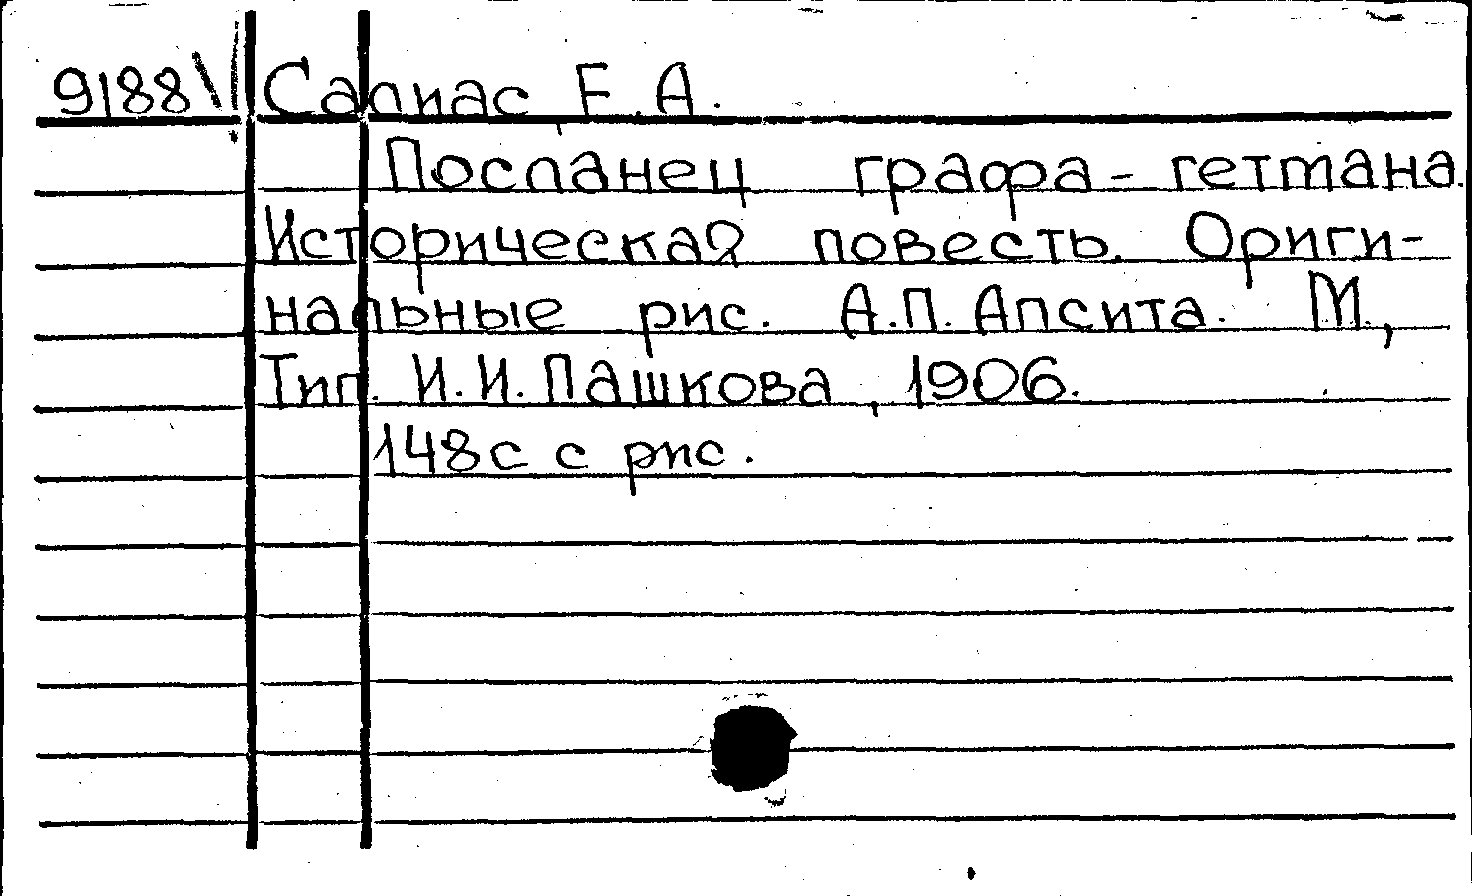 9188 \ Салиас Е.А.
Посланец графа-гетмана.
Историческая повесть. Ориги-
нальные рис. А.П. Апсита. М.,
Тип. И.И. Пашкова, 1906.
148с с рис.